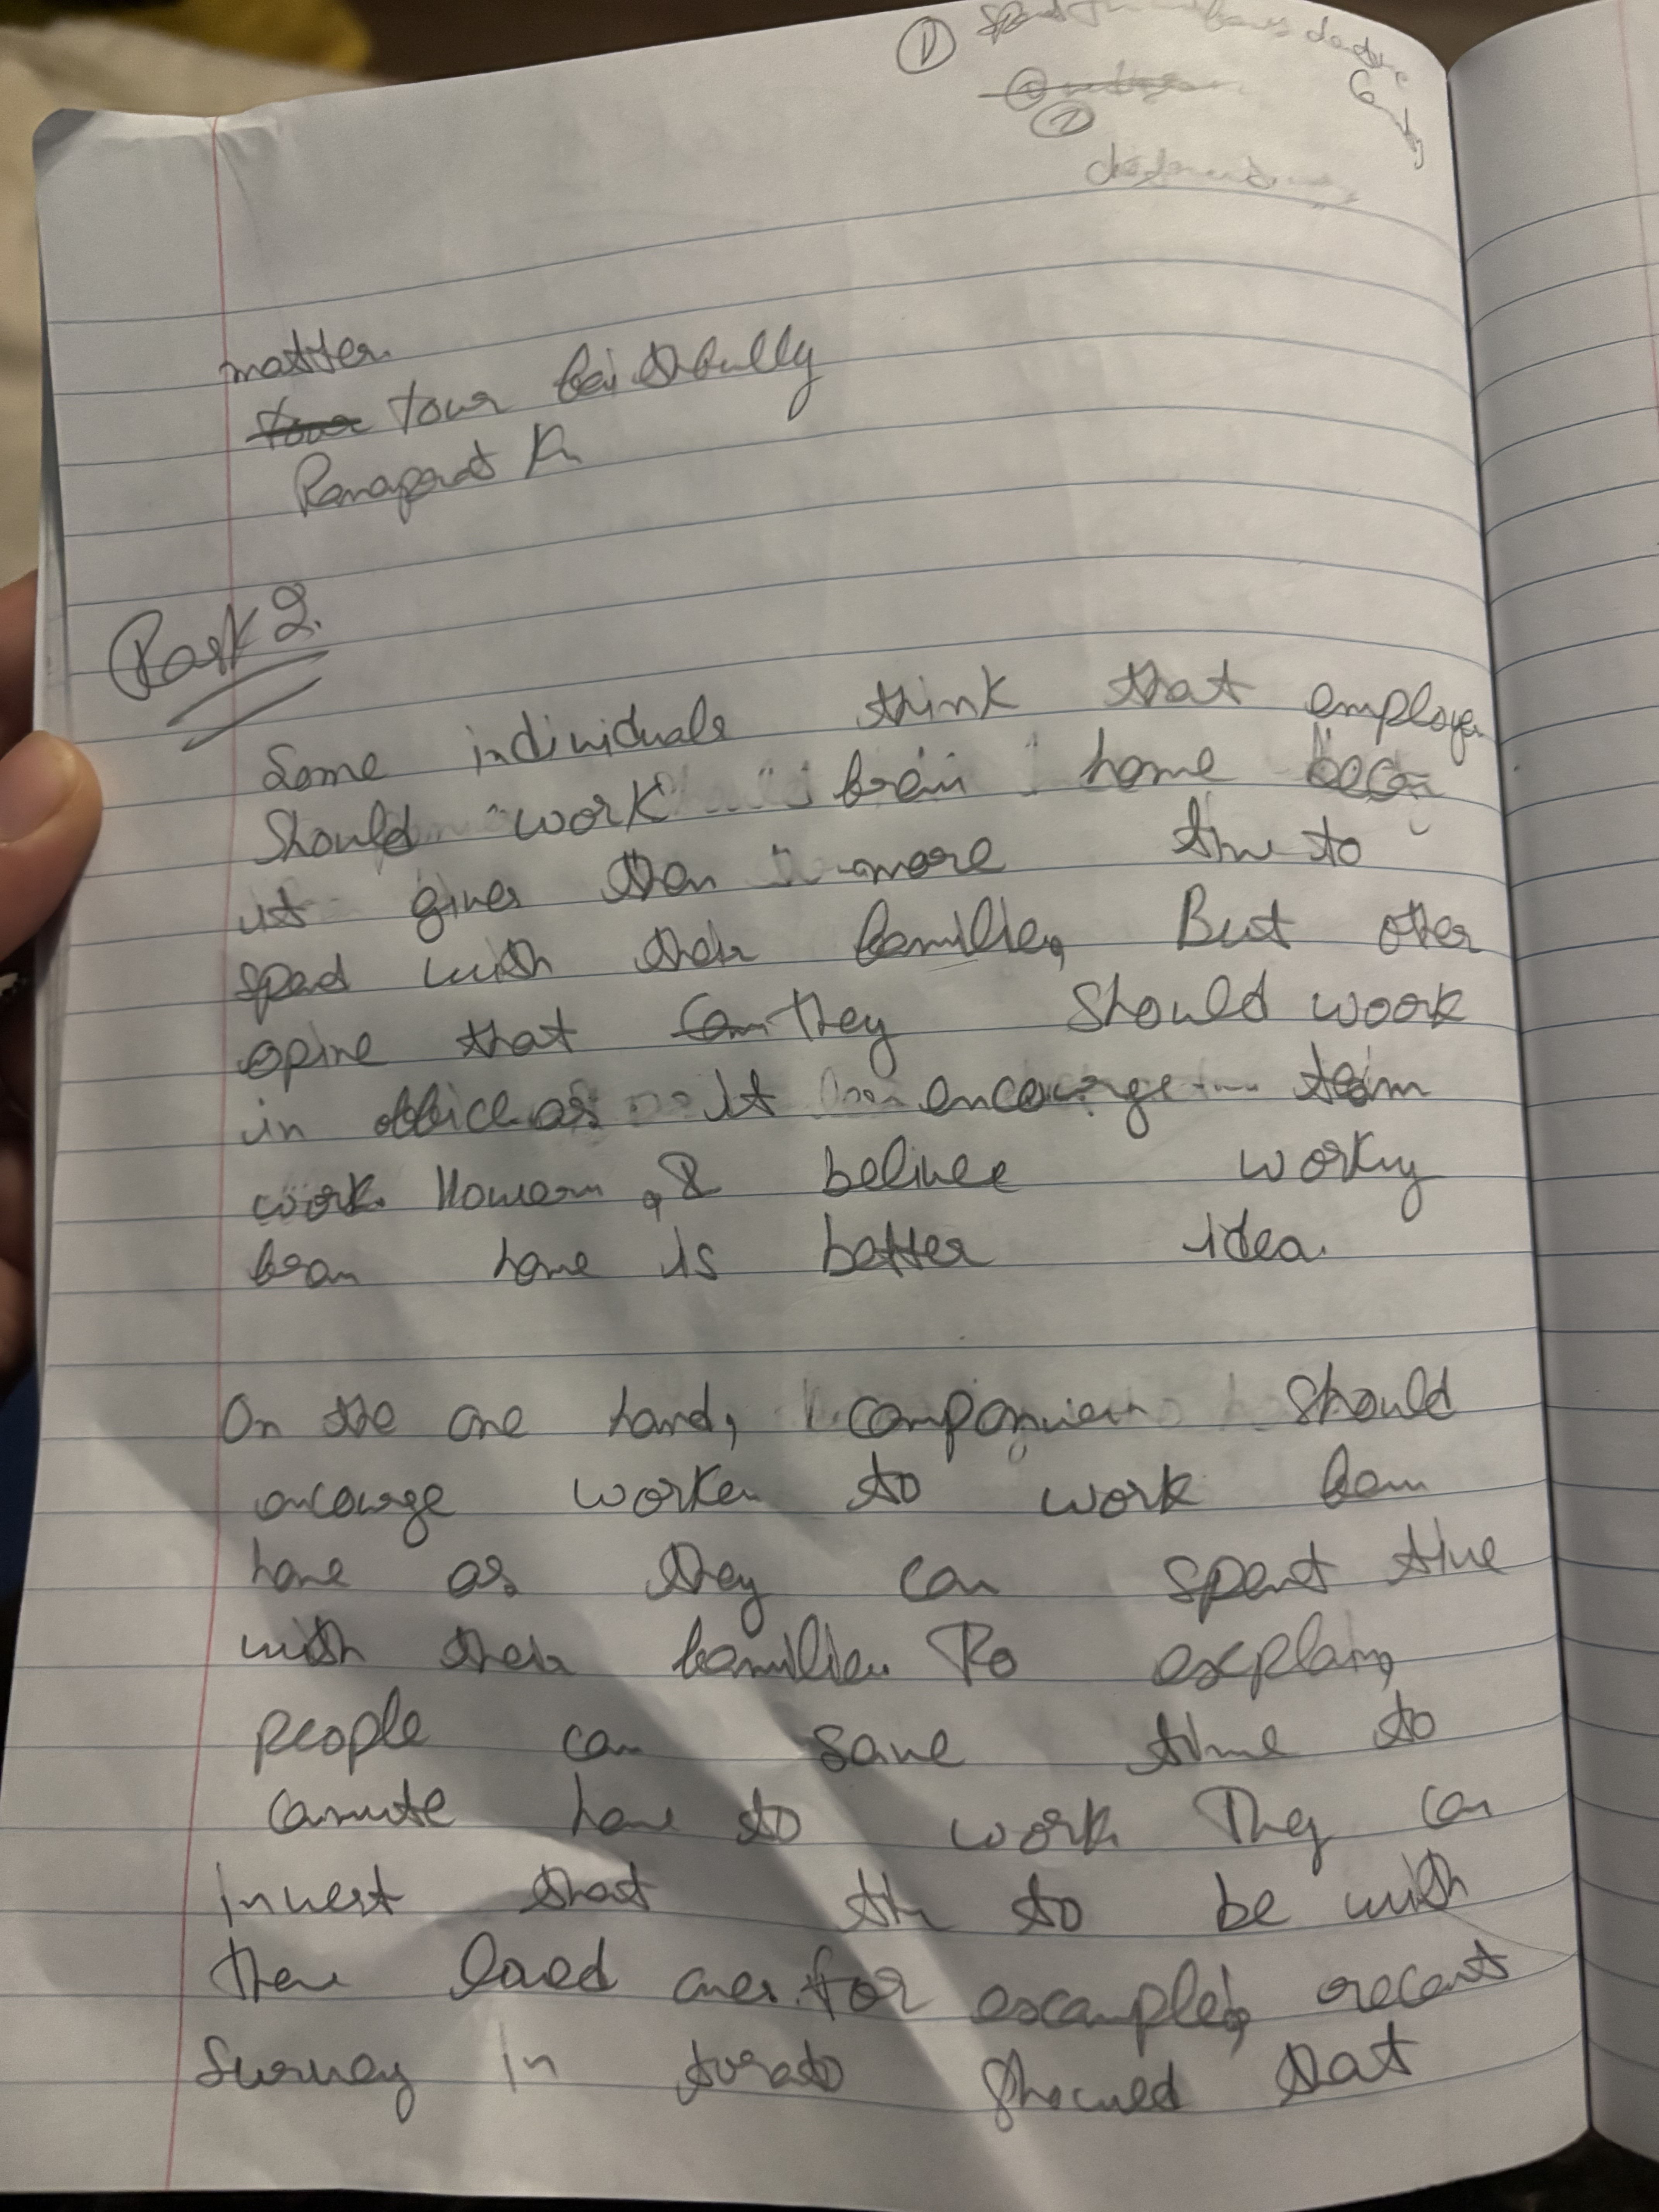 ①
②
matter.
tour faithfully
Task 2.
Some individuals think that employe
should work from home
it gives them more time to
spend with their families, But other
opine that they should work
in office as it encourage team
work. However, I believe working
from home is better idea.
On the one hand, companies should
encourage worker to work from
home as they can spent time
with their families. To explain,
people can save time to
commute home to work. They can
invest that time to be with
there loved ones. for example, recent
survey in toronto showed that